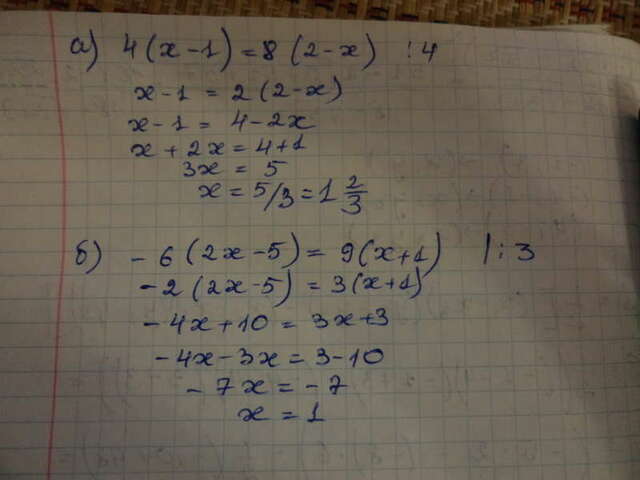 а) 4(x-1)=8(2-x) :4
x-1 = 2(2-x)
x-1 = 4-2x
x+2x=4+1
3x = 5
x = 5/3 = 1 2/3
б) -6(2x-5)=9(x+1) |:3
-2(2x-5)=3(x+1)
-4x+10=3x+3
-4x-3x=3-10
-7x=-7
x=1